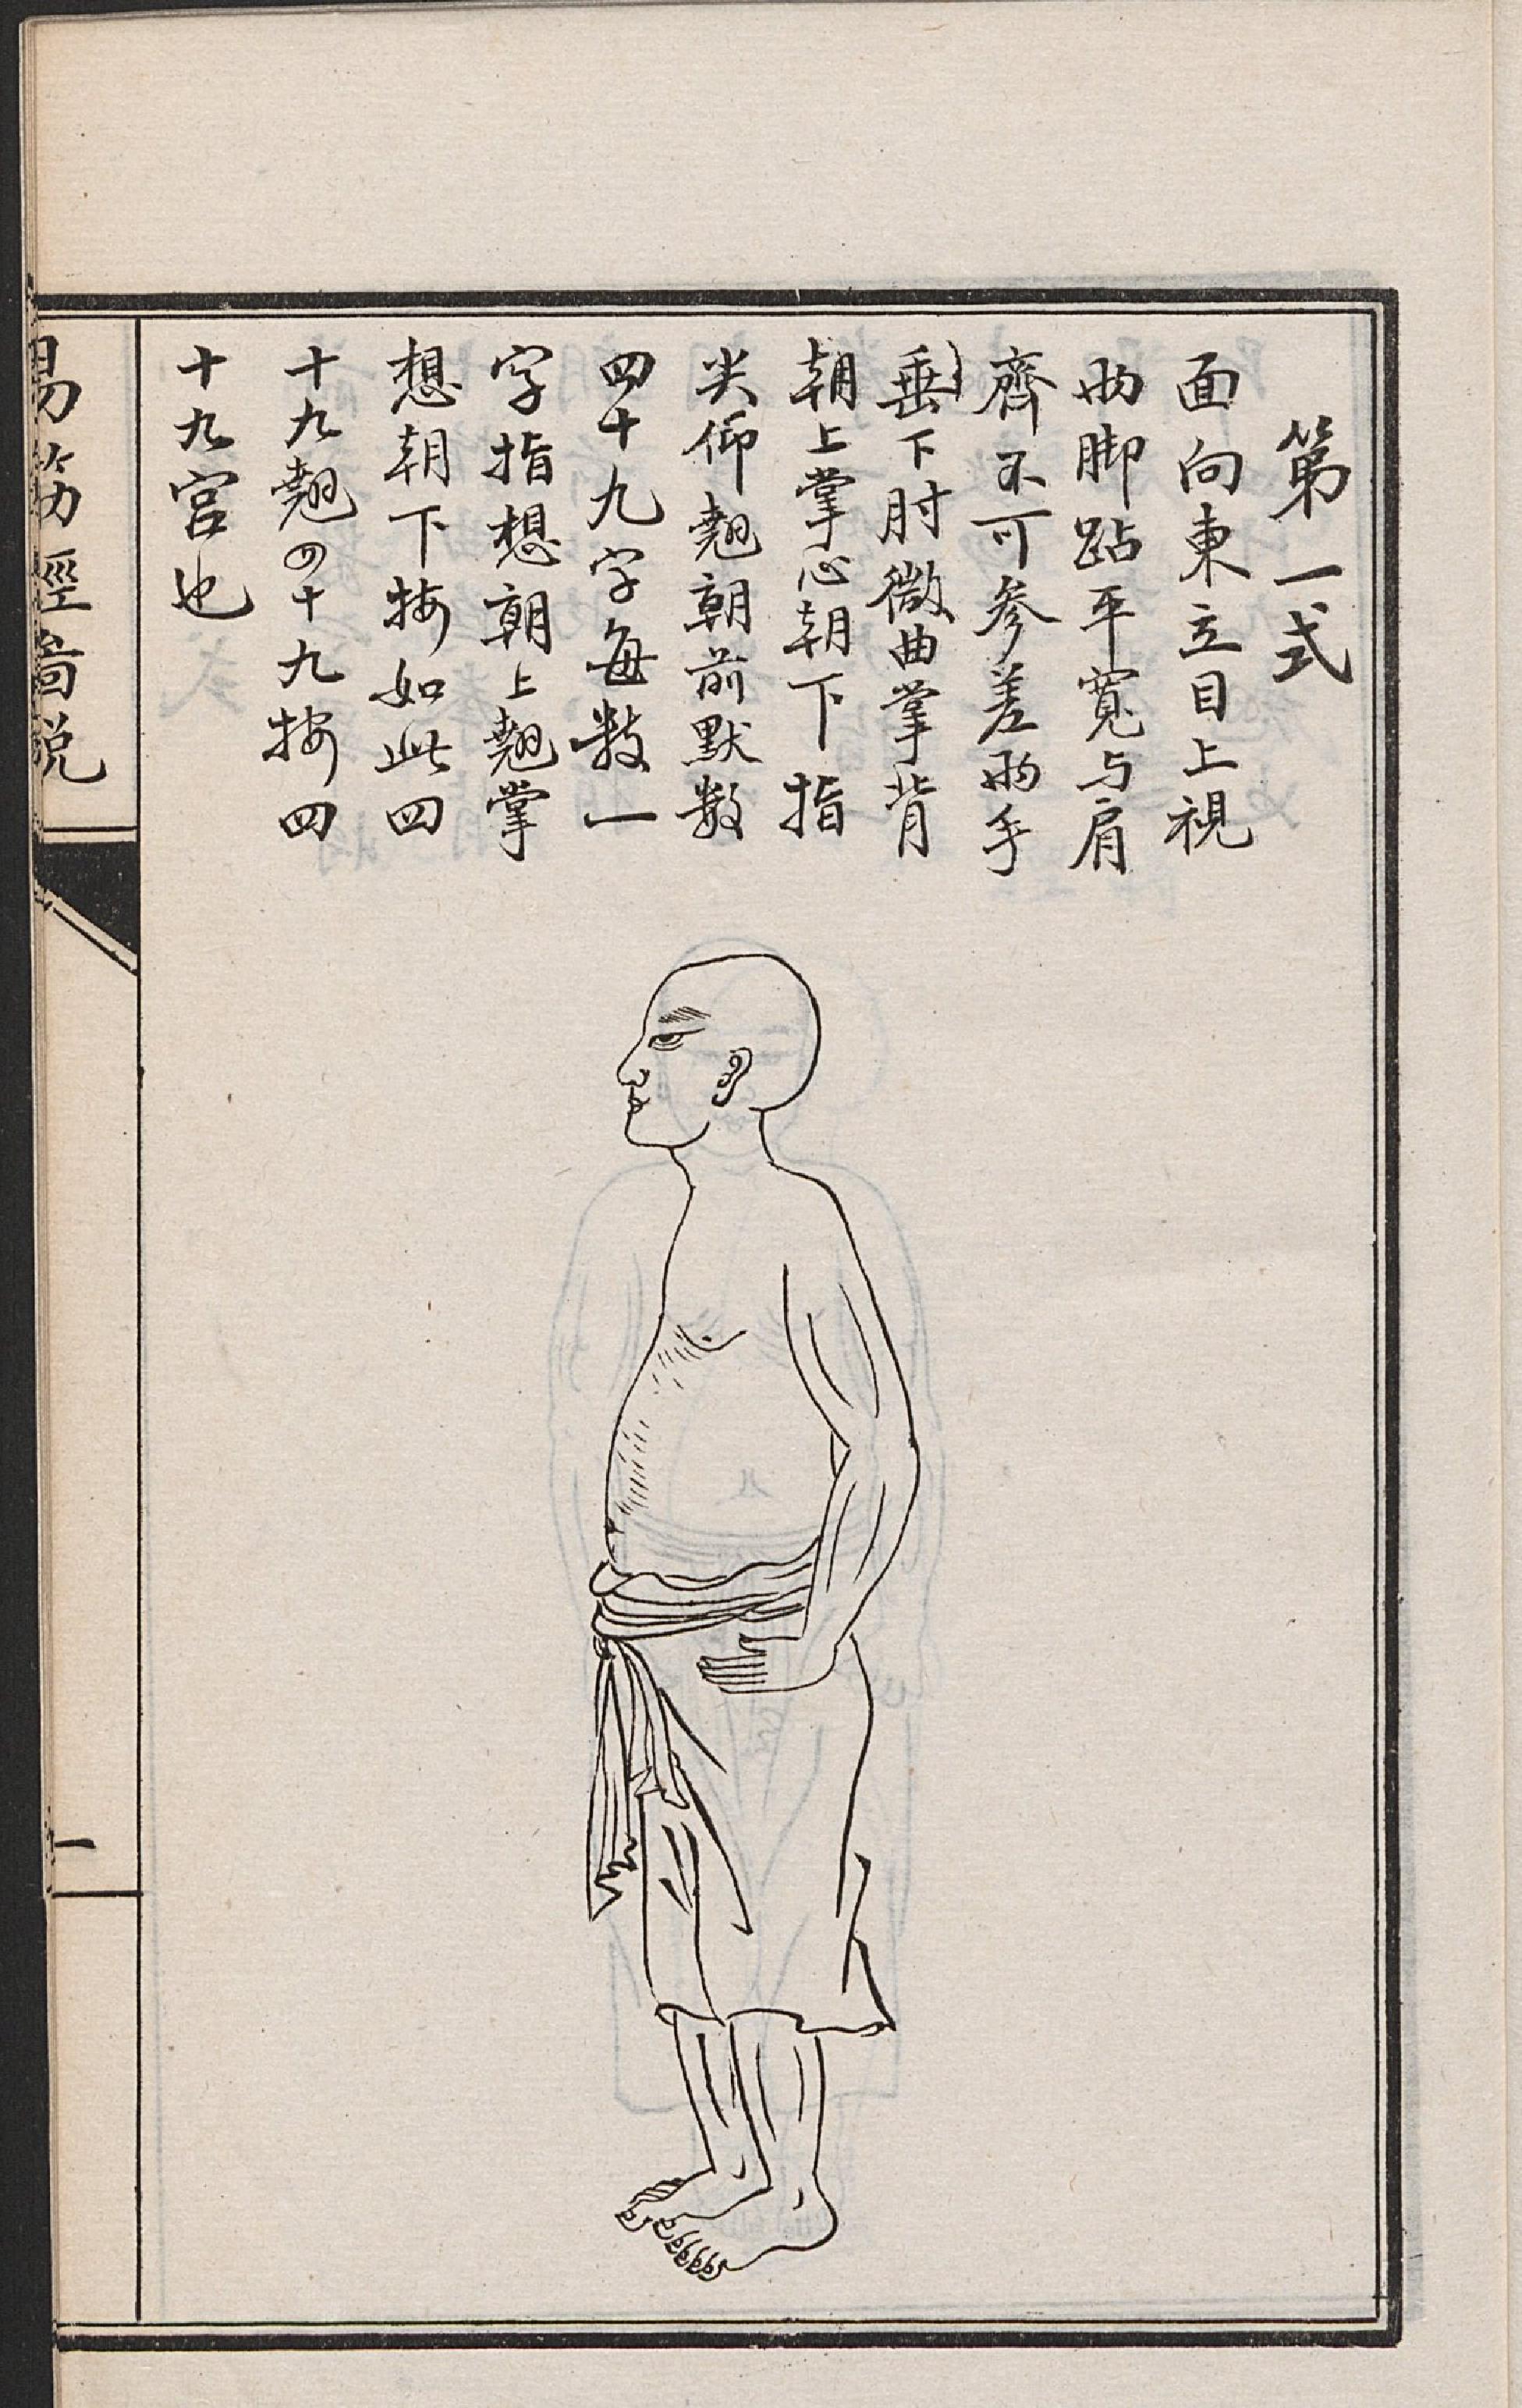 第一式
面向東立目上視
両脚跕平寬与肩
齊不可参差両手
垂下肘微曲掌背
朝上掌心朝下指
尖仰翹朝前默数
四十九字每数一
字指想朝上翹掌
想朝下按如此四
十九翹四十九按四
十九宫也
易筋經圖說
一